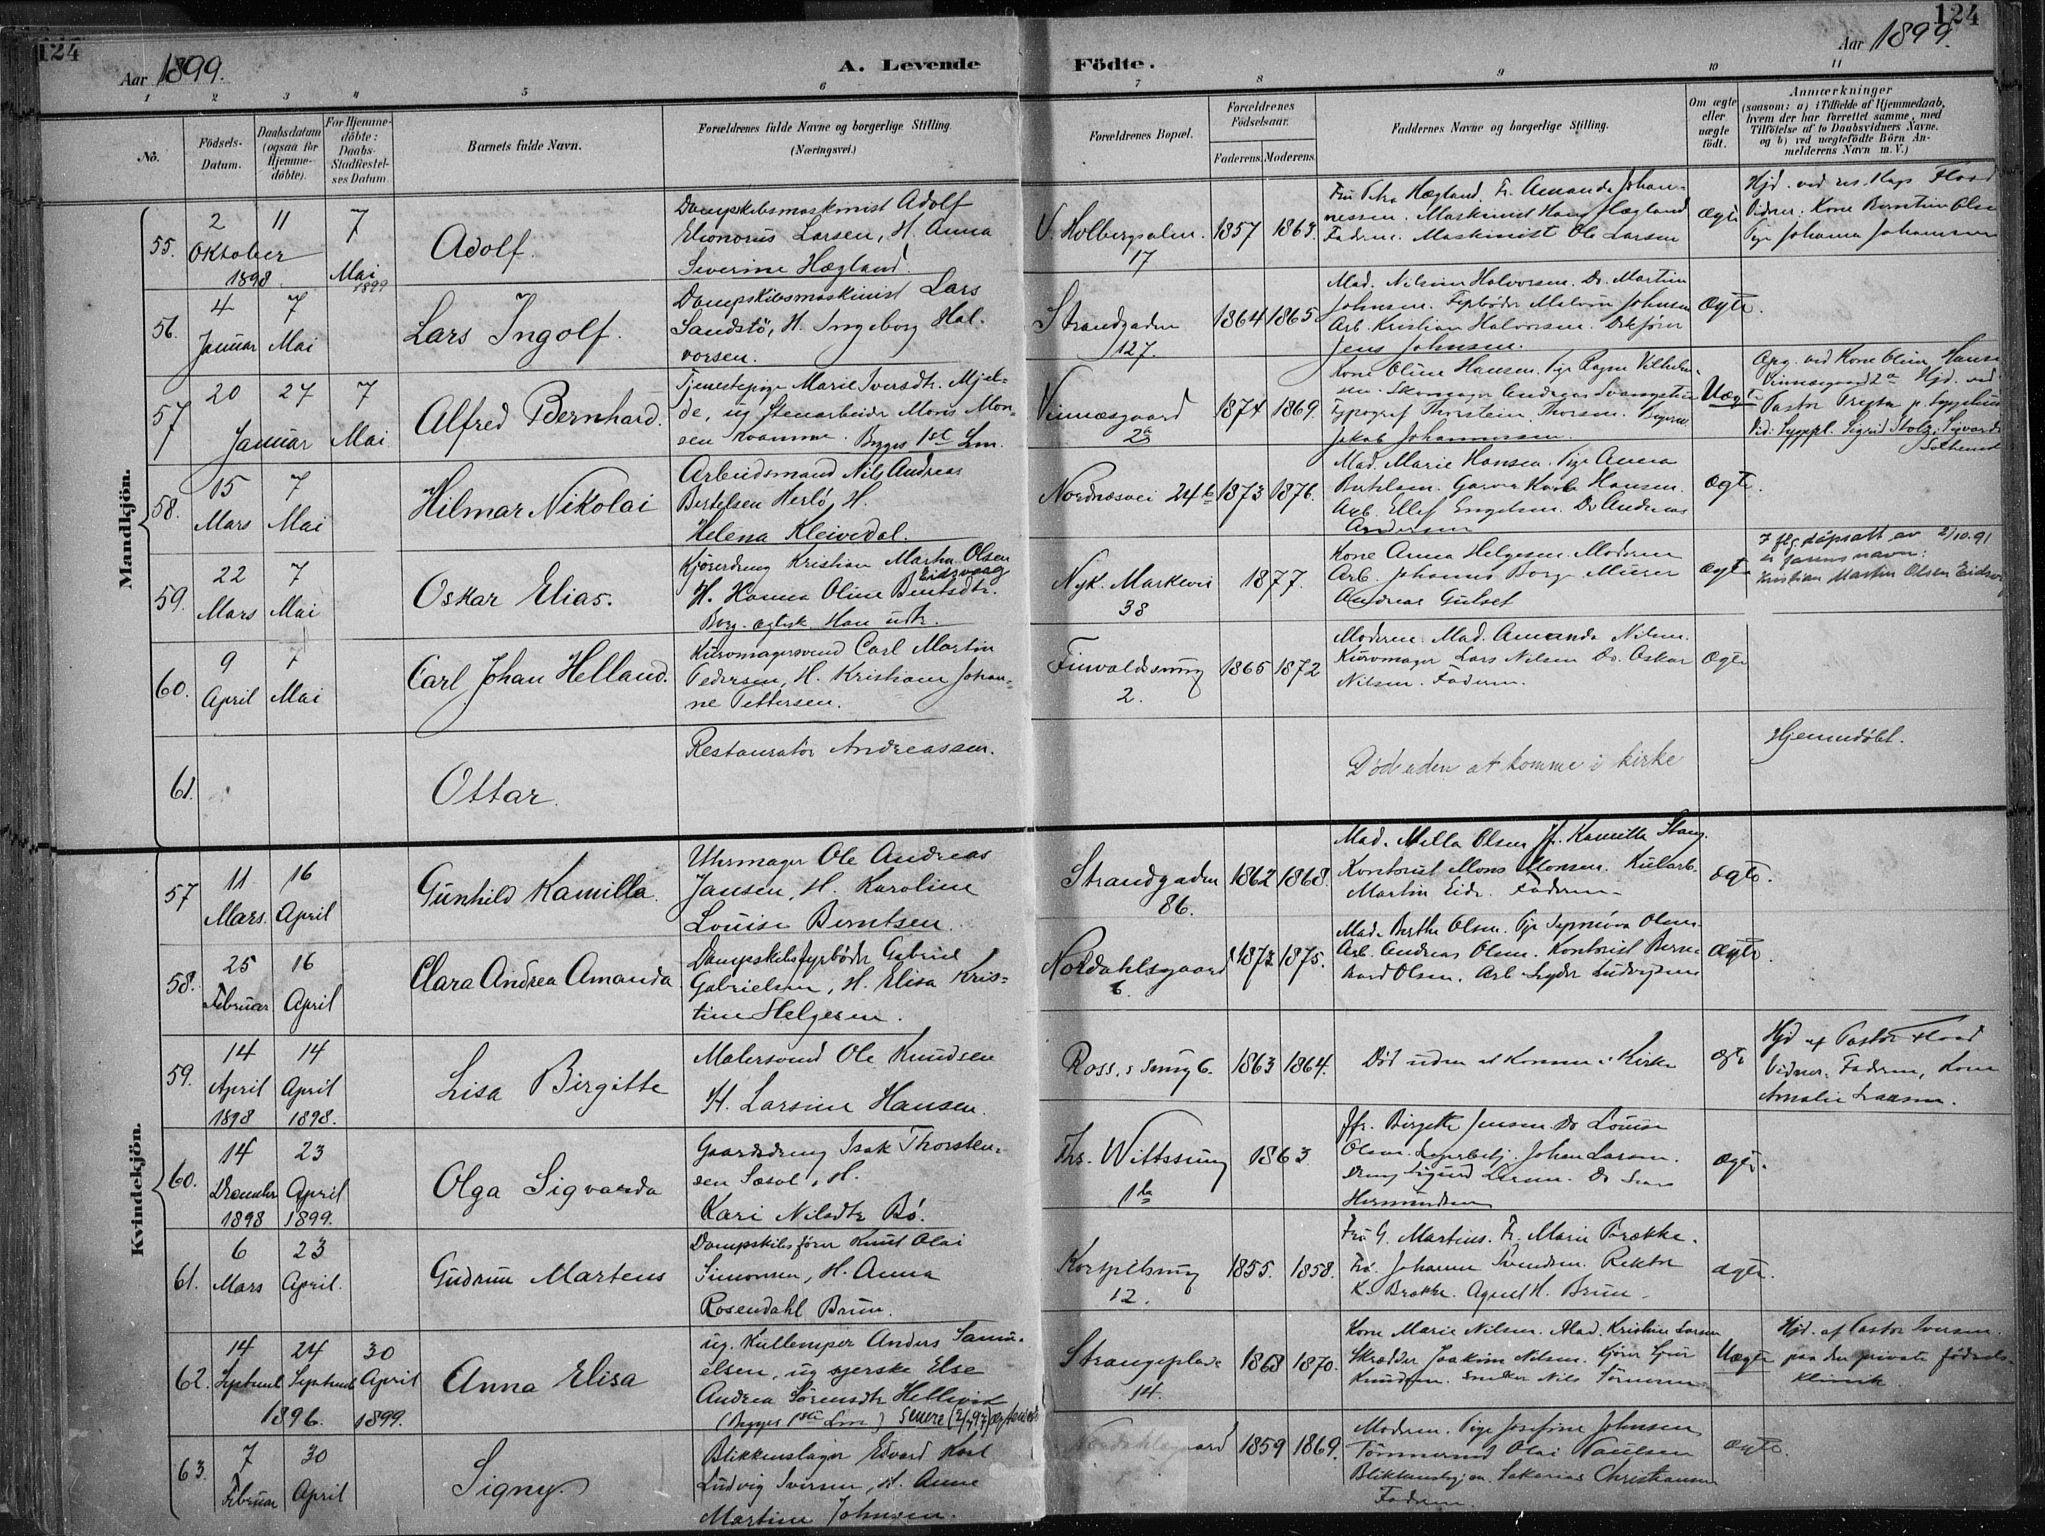 124
124
Aar 1899.
A. Levende
Födte.
Aar 1899.
1 2 3 4 5 6 7 8 9 10 11
No.
Födsels-
Datum.
Daabsdatum
(ogsaa for
Hjemme-
döbte).
For Hjemme-
döbte:
Daabs-
Stadfæstel-
ses Datum.
Barnets fulde Navn.
Forældrenes fulde Navne og borgerlige Stilling.
(Næringsvei.)
Forældrenes Bopæl.
Forældrenes
Födselsaar.
Faderens.
Moderens.
Faddernes Navne og borgerlige Stilling.
Om ægte
eller
uægte
födt.
Anmærkninger
(saasom: a) i Tilfælde af Hjemmedaab,
hvem der har forrettet samme, med
Tilföielse af to Daabsvidners Navne.
og b) ved uægtefödte Börn An-
melderens Navn m. V.)
Mandkjön.
55.
2
Oktober
1898
11
7
Mai
1899
Adolf.
Dampskibsmaskinist Adolf
Elionorus Larsen, H. Anna
Severine Hægland.
V. Holbergsalm.
17
1857
1863.
Fru Petra Hægland. Fr. Amanda Johan-
nessen. Maskinist Hans Hægland
Faderen. Maskinist Ole Larsen
ægte
Hjd. ved res. Kap. Flood
Vidner: Kone Berntine Olsen
Pige Johanna Johannesen
56.
4
Januar
7
Mai
Lars Ingolf.
Dampskibsmaskinist Lars
Sandstö, H. Ingeborg Hal-
vorsen.
Strandgaden
127.
1864
1865
Mad. Nilsine Halvorsen. Do. Martine
Johnsen. Fyrböder Johnsen
Arb. Kristian Halvorsen.
Jens Johnsen.
ægte.
57
20
Januar
27
7
Mai
Alfred Bernhard.
Tjenestepige Marie Iversdtr. Mjel-
de, ug. Stenarbeider Mons Mon-
sen Kvamme. Begges 1ste Lm.
Vinnæsgaard
2a
1874
1869.
Kone Oline Hansen. Pige Ragna Vilhelm-
sen. Skomager Andreas
Typograf Thorstein Thorsen.
Jakob Johannessen.
Uægte
Opg. ved Kone Oline Hansen
Vinnæsgaard 2a Hjd. ved
Pastor
Vid: Sigrid Stolz,
58.
15
Mars
7
Mai
Hilmar Nikolai
Arbeidsmand Nils Andreas
Bertelsen Herlö, H.
Helena Kleivedal.
Nordnæsvei 24b
1873
1876.
Mad. Marie Hansen. Pige Anna
Bertelsen. Garver Karl Hansen.
Arb. Ellef Engelsen. Do Andreas
Andersen
ægte.
59.
22
Mars
7
Mai
Oskar Elias.
Kjöredreng Kristian Martin Olsen
Eidsvaag
H. Hanna Oline Berntsdtr.
Borg. ægtesk. Han udtr.
Nyk. Markevei
38
1877.
Kone Anna Helgesen. Moderen
Arb. Johannes Borge Murer
Andreas Gulset
ægte
I flg. dåpsatt av 2/10.91
er farens navn:
Kristian Martin Olsen Eidsvag
60.
9
April
7
Mai
Carl Johan Helland.
Kurvmagersvend Carl Martin
Pedersen, H. Kristiane Johan-
ne Pettersen.
Finvoldssmug
2.
1865
1872
Moderen. Mad. Amanda Nilsen.
Kurvmager Lars Nilsen Do. Oskar
Nilsen. Faderen.
ægte
61.
Ottar.
Restauratör Andreassen.
Död uden at komme i kirke
Hjemmdöbt.
Kvindekjön.
57
11
Mars.
16
April
Gunhild Kamilla.
Uhrmager Ole Andreas
Jansen, H. Karoline
Louise Berntsen.
Strandgaden
86.
1862
1868.
Mad. Milla Olsen Jf. Kamilla Stang.
Kontorist Mons Monsen. Kularb.
Martin Eide. Faderen.
ægte.
58.
25
Februar
16
April
Clara Andrea Amanda
Dampskibsfyrböder Gabriel
Gabrielsen, H. Elisa Kris-
tine Helgesen.
Nordahlsgaard
6.
1873
1875.
Mad. Berthe Olsen. Pige Olsen
Arb. Andreas Olsen. Kontorist Bern-
hard Olsen. Arb. Ludvigsen
ægte.
59.
14
April
1898
14
April
1898.
Lisa Birgitte
Malersvend Ole Knudsen
H. Larsine Hansen.
Ross. s smug 6.
1863
1864.
Död uden at komme i Kirke
ægte
Hjd af Pastor Flood
Vidner. Faderen, Kone
Amalie Larsen.
60.
14
Desember
1898
23
April
1899.
Olga Sigvarda
Gaardsdreng Isak Thorsten-
sen Sæsol, H.
Kari Nilsdtr Bö.
Ths. Wittssmug
1b
1863
Jfr. Birgitte Jensen. Do Louise
Olsen. Lagerbetj. Johan Larsen.
Dreng Sigurd Do
Hermundsen
ægte.
61.
6
Mars
23
April.
Gudrun Martens
Dampskibsförer Knut Olai
Simonsen, H. Anna
Rosendahl Bruun.
Korspeltsmug
12.
1855.
1858.
Fru G. Martins. Fr. Marie Brække.
Frk. Johanne Svendsen. Rektor
K. Brække. Agent H. Bruun.
ægte.
62.
14
Septemb
24
Septemb
1896.
30
April
1899.
Anna Elisa
ug. Kullemper Anders Samu-
elsen, ug syerske Else
Andrea Sörensdtr Hellevik
(Begges 1ste Lm) Senere (2/7 97)
Strangeplads
14.
1868
1870.
Kone Marie Nilsen. Mad. Kristine Larsen
Skrædder Joakim Nilsen. Kjörer
Knudsen. Snekker Nils
Uægte
Hjd. af Pastor Iversen.
paa den private födsels-
klinik.
63.
7
Februar
30
April
Signy.
Blikkenslager Edvard Karl
Ludvig Iversen, H. Anne
Martine Johnsen.
Nordahlsgaard
1859
1869.
Moderen. Pige Josefine Johnsen
Tömmermd Olai Paulsen
Sakarias Christiansen
Faderen.
ægte.